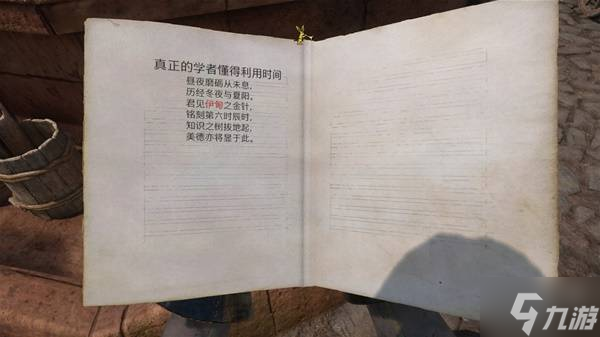 真正的学者懂得利用时间
昼夜磨砺从未息，
历经冬夜与夏阳。
君见伊甸之金针，
铭刻第六时辰时，
知识之树拔地起，
美德亦将显于此。
九游